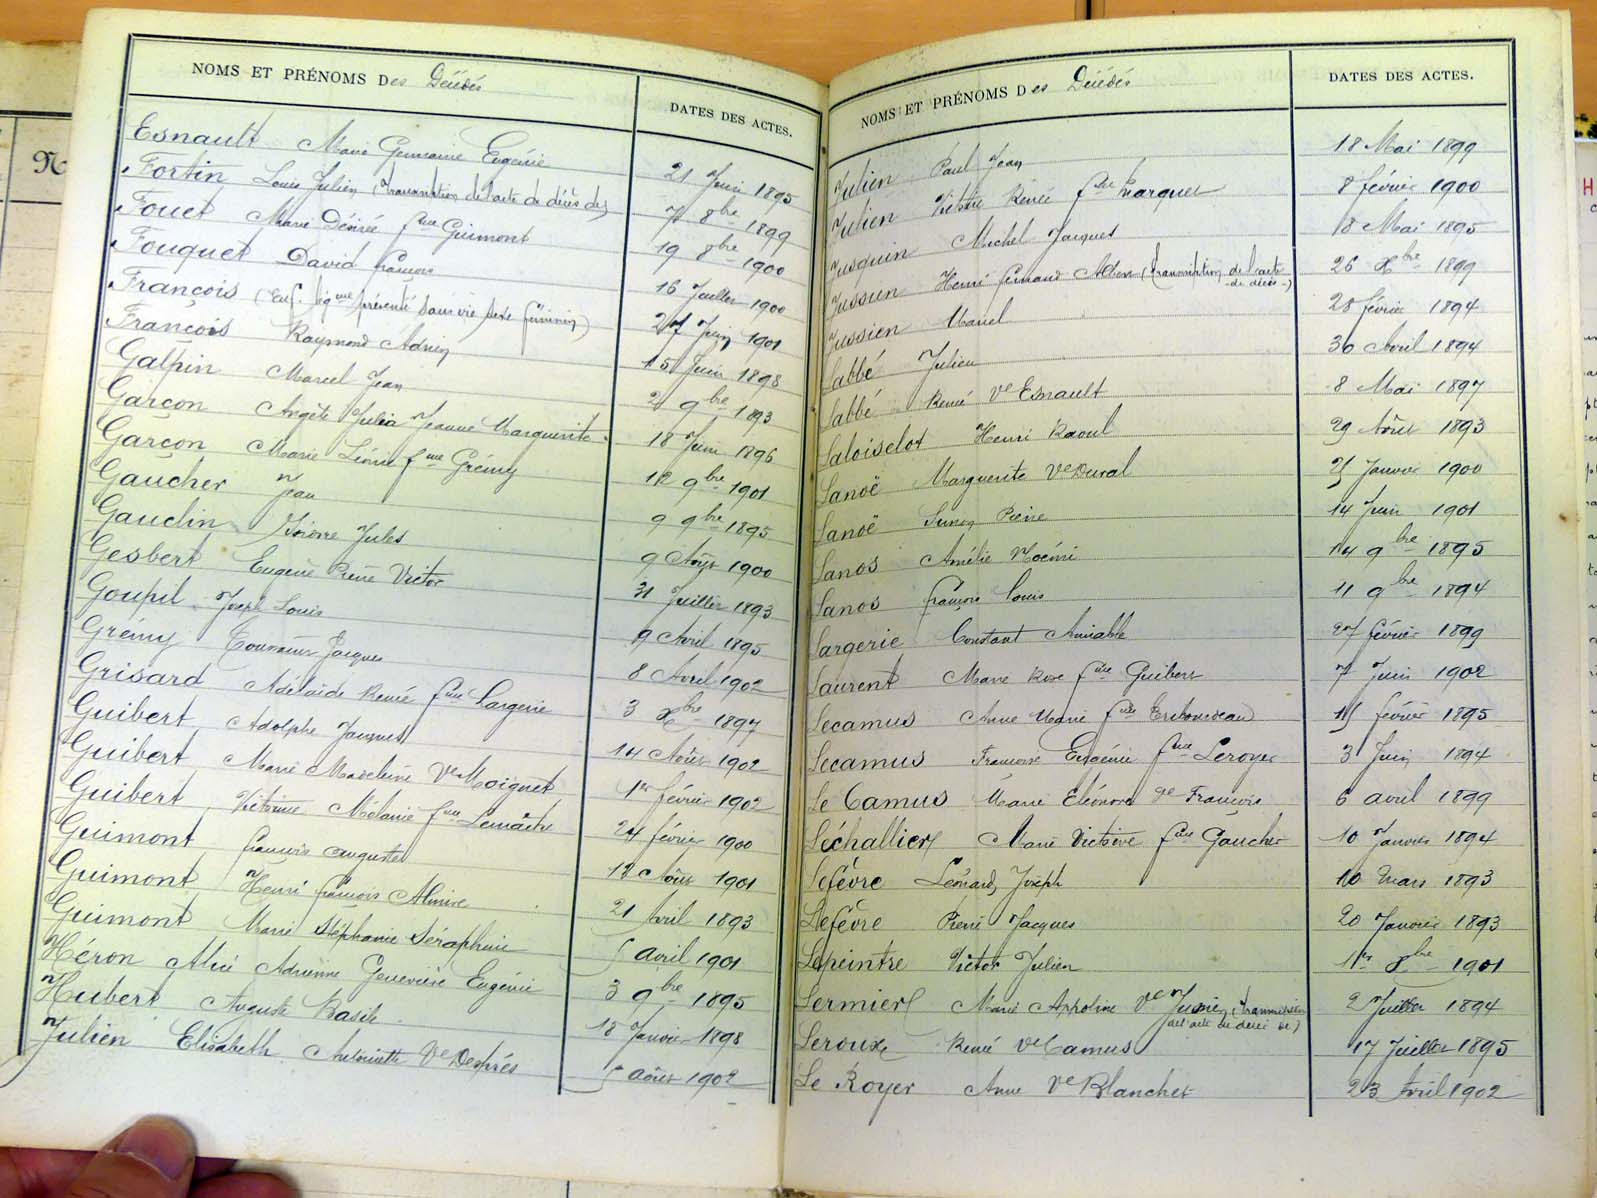 NOMS ET PRÉNOMS Des Décédés
DATES DES ACTES.
Esnault Marie Germaine Eugénie 21 Juin 1895
Fortin Louis Julien (transcription de l'acte de décès de) 7 8bre 1899
Fouet Marie Désirée fme Guimont 19 8bre 1900
Fouquet David François 16 Juillet 1900
François (Enf. présenté sans vie sexe féminin) 27 Juin 1901
François Raymond Adrien 15 Juin 1898
Galpin Marcel Jean 2 9bre 1893
Garçon Angèle Julia Jeanne Marguerite 18 Juin 1896
Garçon Marie Léonie fme Grémy 12 9bre 1901
Gaucher Jean 9 9bre 1895
Gaudin Isidore Jules 9 Août 1900
Gesbert Eugène Pierre Victor 31 Juillet 1893
Goupil Joseph Louis 9 Avril 1895
Grémy Jacques 8 Avril 1902
Grisard Adélaïde Renée fme Largerie 3 Xbre 1897
Guibert Adolphe Jacques 14 Août 1902
Guibert Marie Madeleine Ve Moignet 1er février 1902
Guibert Victorine Mélanie fme Lemaître 24 février 1900
Guimont François Auguste 12 Août 1901
Guimont Henri François 21 Avril 1893
Guimont Marie Stéphanie Séraphine 5 avril 1901
Héron Alice Adrienne Geneviève Eugénie 3 9bre 1895
Hubert Auguste Basile 18 Janvier 1898
Julien Elisabeth Antoinette Ve Després 5 août 1902
NOMS ET PRÉNOMS Des Décédés
DATES DES ACTES.
Julien Paul Jean 18 Mai 1899
Julien Victoire Renée fme Marquet 8 février 1900
Jusquin Michel Jacques 18 Mai 1895
Jussien Henri Fernand (transcription de l'acte de décès) 26 Xbre 1899
Jussien Marcel 28 février 1894
Labbé Julien 30 Avril 1894
Labbé Renée Ve Esnault 8 Mai 1897
Laloiselot Henri Raoul 29 Août 1893
Lanoë Marguerite Ve Duval 25 Janvier 1900
Lanoë Pierre 14 Juin 1901
Lanos Amélie Noémi 14 9bre 1895
Lanos François Louis 11 9bre 1894
Largerie Constant Aimable 27 février 1899
Laurent Marie Rose fme Guibert 7 Juin 1902
Lecamus Anne Marie fme 15 février 1895
Lecamus Françoise Eugénie fme Leroyer 3 Juin 1894
Le Camus Marie Eléonore Ve François 6 avril 1899
Léchallier Marie Victoire fme Gaucher 10 Janvier 1894
Lefévre Léonard Joseph 10 mars 1893
Lefévre Pierre Jacques 20 Janvier 1893
Lepeintre Victor Julien 1er 8bre 1901
Lermier Marie Appoline Ve (transcription de l'acte de décès de) 2 Juillet 1894
Leroux Renée Ve Camus 17 Juillet 1895
Le Royer Anne Ve Blanchet 23 Avril 1902